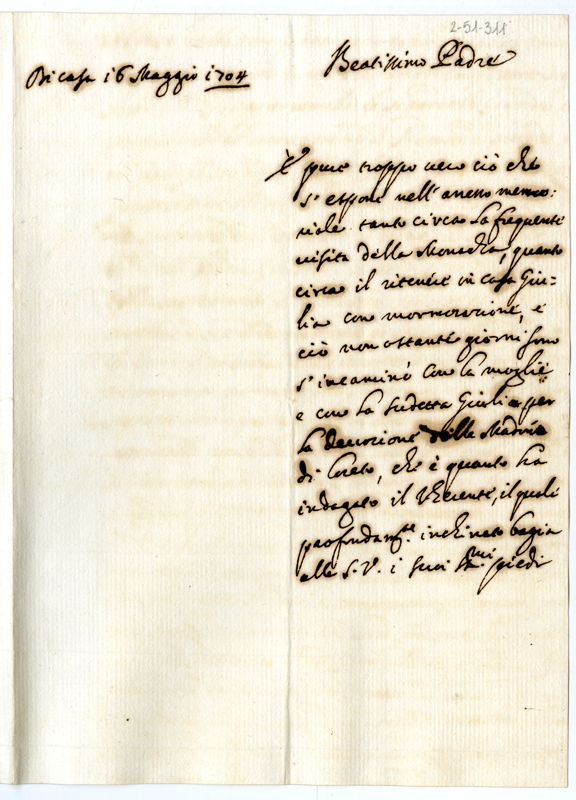 2-51-311
Beatissimo Padre
Di casa 16 Maggio 1704
È pure troppo vero ciò che
s'espone nell'anesso memo:
riale tanto circa la frequente
visita della Monacha, quanto
circa il ritenere in casa Giu=
lia con mormorazione, e
ciò non ostante giorni sono
s'incaminò con la moglie
e con la sudetta Giulia per
la devozione della Madonna
di Loreto, che è quanto ha
indagato il riferente, il quale
profondamte. inchinato bagia
alla S.V. i suoi smi piedi